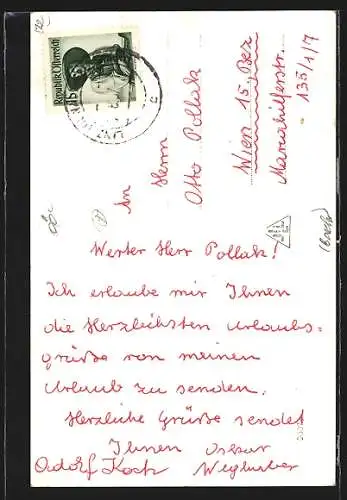 Republik Österreich
An Herrn
Otto Pollak
Wien 15., Bez
Mariahilferstr.
135/1/7
Werter Herr Pollak!
Ich erlaube mir Ihnen
die Herzlichsten Urlaubs-
grüße von meinen
Urlaub zu senden.
Herzliche Grüße sendet
Ihnen Oskar
Adolf Koch